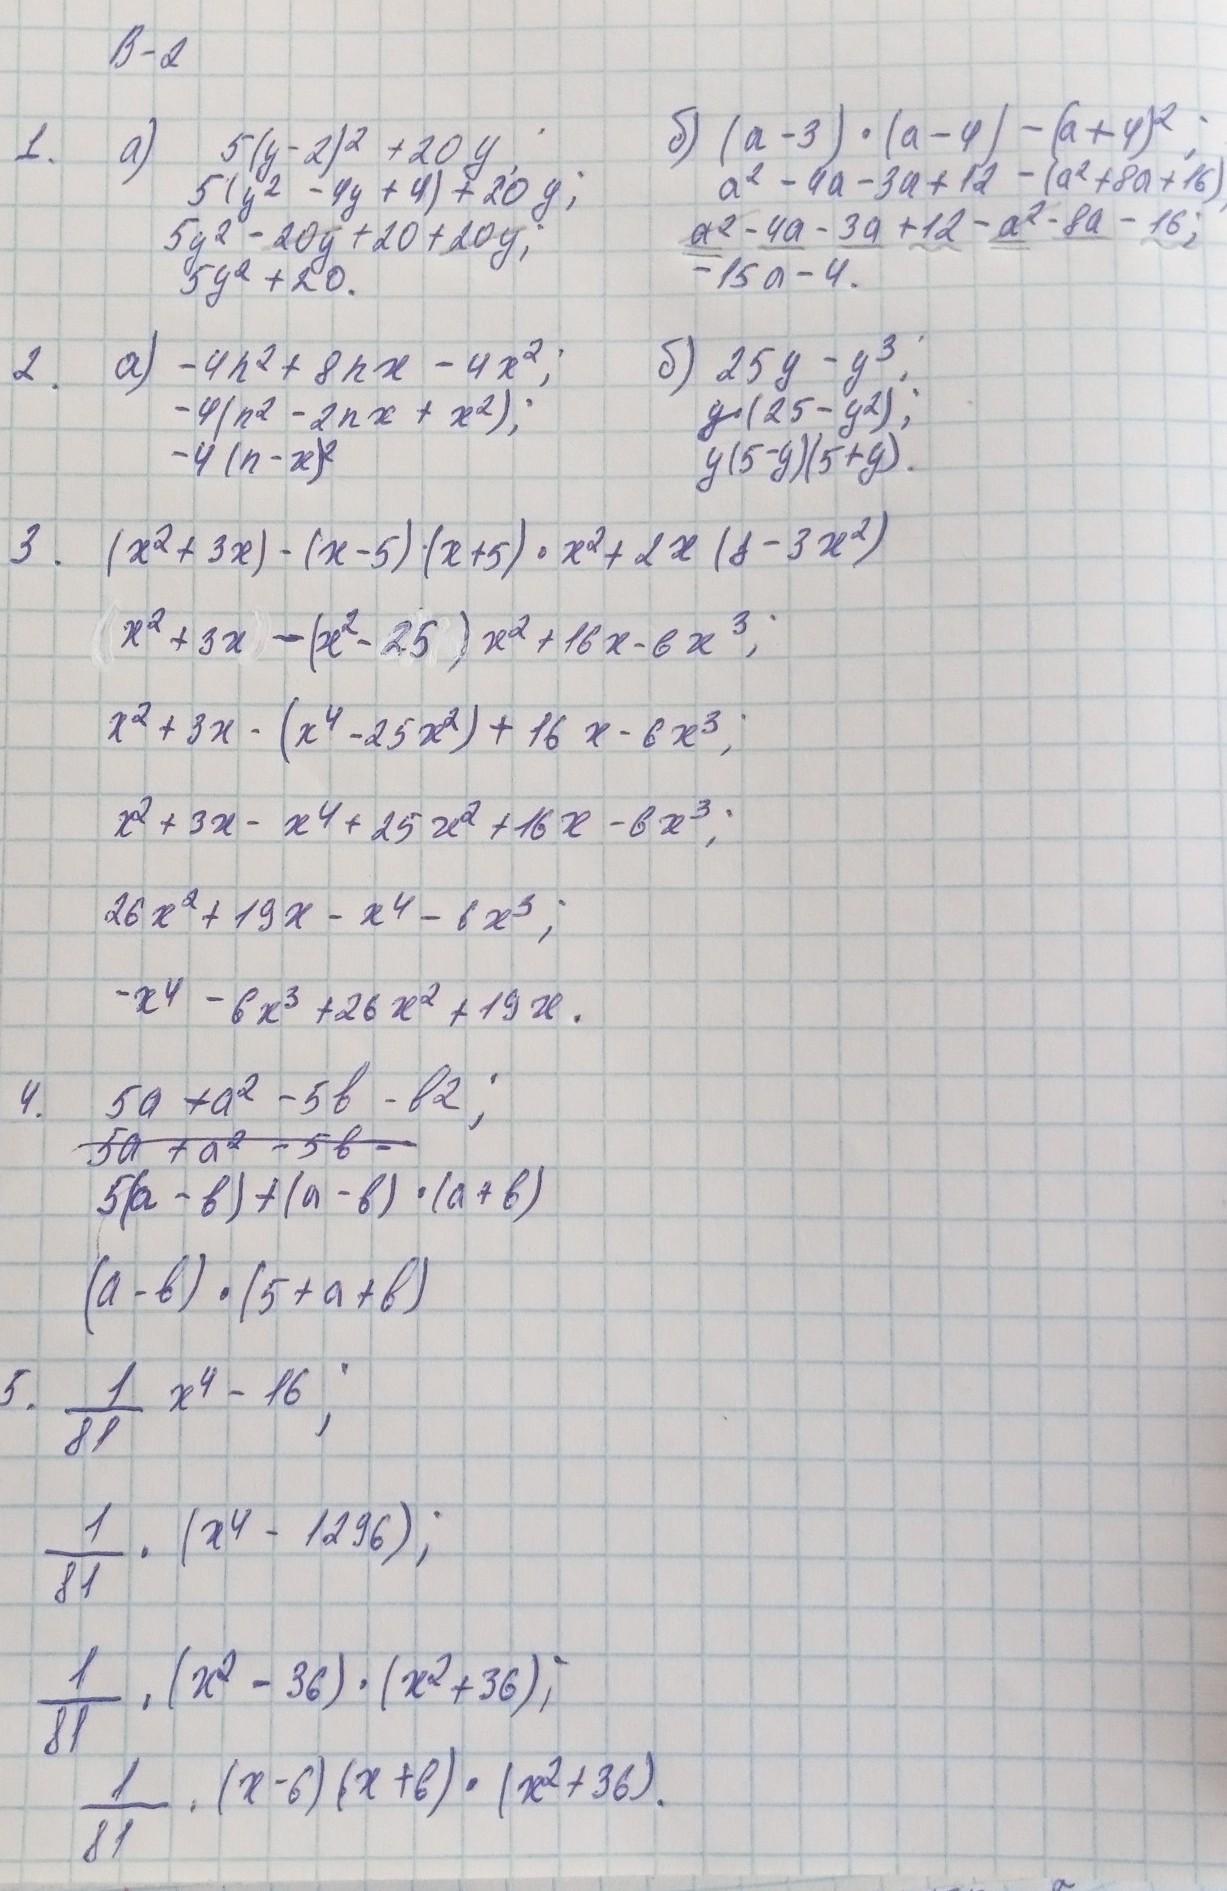 В-2
1. а) 5(y-2)² + 20y;
5(y² - 4y + 4) + 20y;
5y² - 20y + 20 + 20y;
5y² + 20.
б) (a-3)·(a-4) - (a+4)²;
a² - 4a - 3a + 12 - (a² + 8a + 16)
a² - 4a - 3a + 12 - a² - 8a - 16;
-15a - 4.
2. а) -4n² + 8nx - 4x²;
-4(n² - 2nx + x²);
-4(n-x)²
б) 25y - y³;
y·(25 - y²);
y(5-y)(5+y).
3. (x² + 3x) - (x-5)·(x+5)·x² + 2x(8 - 3x²)
(x² + 3x) - (x² - 25)x² + 16x - 6x³;
x² + 3x - (x⁴ - 25x²) + 16x - 6x³;
x² + 3x - x⁴ + 25x² + 16x - 6x³;
26x² + 19x - x⁴ - 6x³;
-x⁴ - 6x³ + 26x² + 19x.
4. 5a + a² - 5в - в2;
5a + a² - 5в -
5(a - в) + (a - в)·(a + в)
(a - в)·(5 + a + в)
5. 1/81 x⁴ - 16;
1/81 · (x⁴ - 1296);
1/81 · (x² - 36)·(x² + 36);
1/81 · (x-6)(x+6)·(x² + 36).